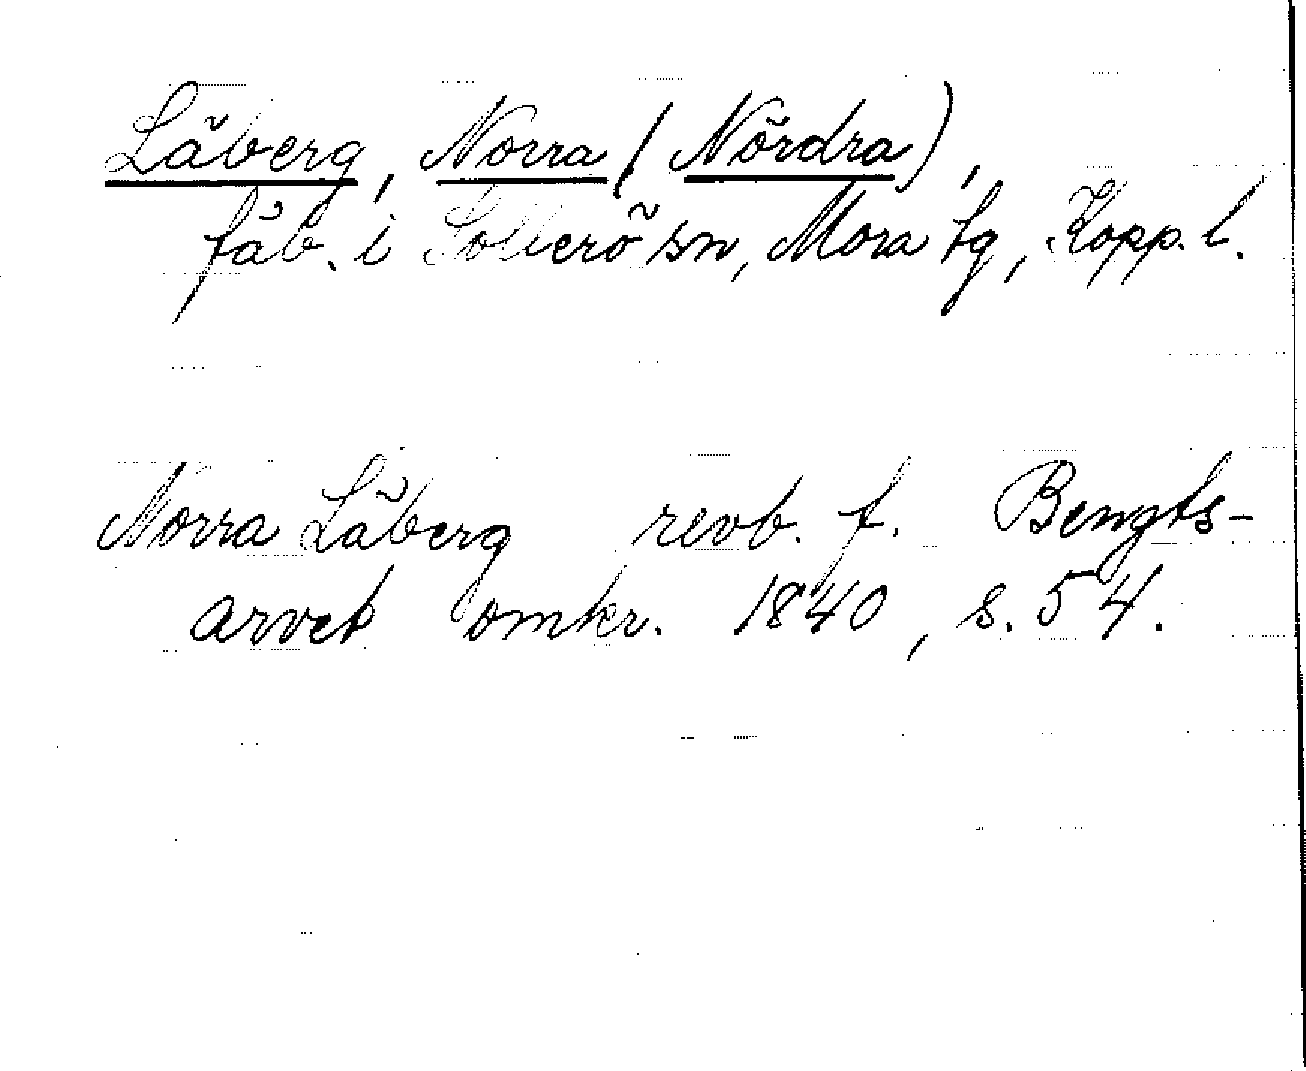 Läberg, Norra (Nördra),
fäb. i Sollerö sn, Mora tg, Kopp. l.
Norra Läberg revb. f. Bengts-
arvet omkr. 1840, s. 54.